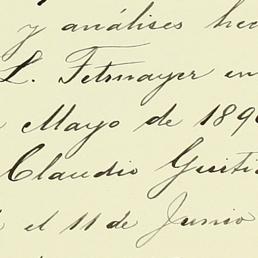 y análises hec
L. Fetsmayer en
Mayo de 189
Claudio Guiti
el 11 de Junio